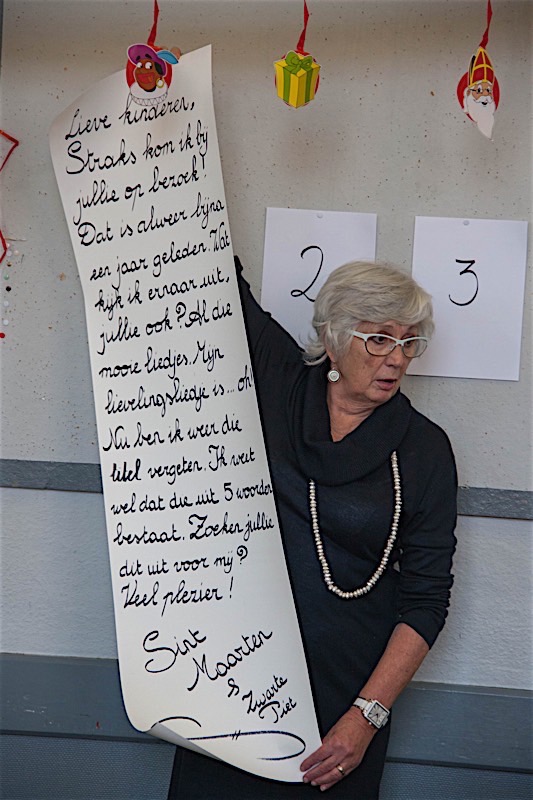 Lieve kinderen,
Straks kom ik bij
jullie op bezoek!
Dat is alweer bijna
een jaar geleden. Wat
kijk ik ernaar uit,
jullie ook? Al die
mooie liedjes. Mijn
lievelingsliedje is... oh!
Nu ben ik weer die
titel vergeten. Ik weet
wel dat die uit 5 woorden
bestaat. Zoeken jullie
dit uit voor mij?
Veel plezier!
Sint
Maarten
&
Zwarte
Piet
2
3